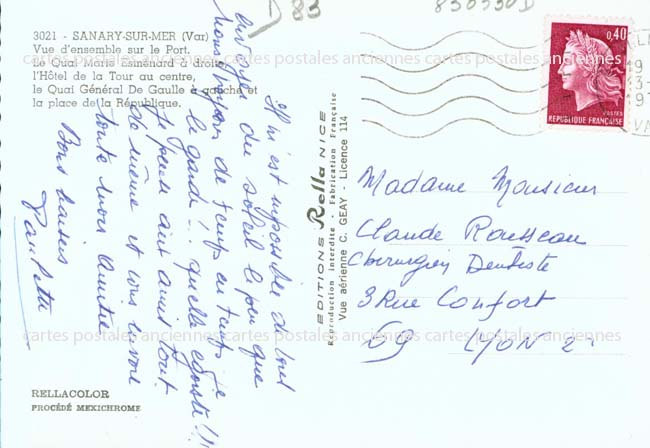 D 83
830930D
3021 - SANARY-SUR-MER (Var)
Vue d'ensemble sur le Port.
Le Quai Marie Esménard à droite,
l'Hôtel de la Tour au centre,
le Quai Général De Gaulle à gauche et
la place de la République.
cartes postales anciennes cartes postales anciennes cartes postales anciennes
0,40
POSTES
REPUBLIQUE FRANÇAISE
Il m'est impossible de vous
envoyer du soleil le peu que
nous avons de temps en temps je
le garde!.. quelle égoïste!!!
Je pense aux amis tout
de même et vous envoie
toute mon amitié
Bons baisers
Paulette
EDITIONS Rella NICE
Reproduction interdite - Fabrication Française
Vue aérienne C. GEAY - Licence 114
Madame Monsieur
Claude Rousseau
Chirurgien Dentiste
3 Rue Confort
69 LYON 2
cartes postales anciennes cartes postales anciennes cartes postales anciennes
RELLACOLOR
PROCÉDÉ MEXICHROME